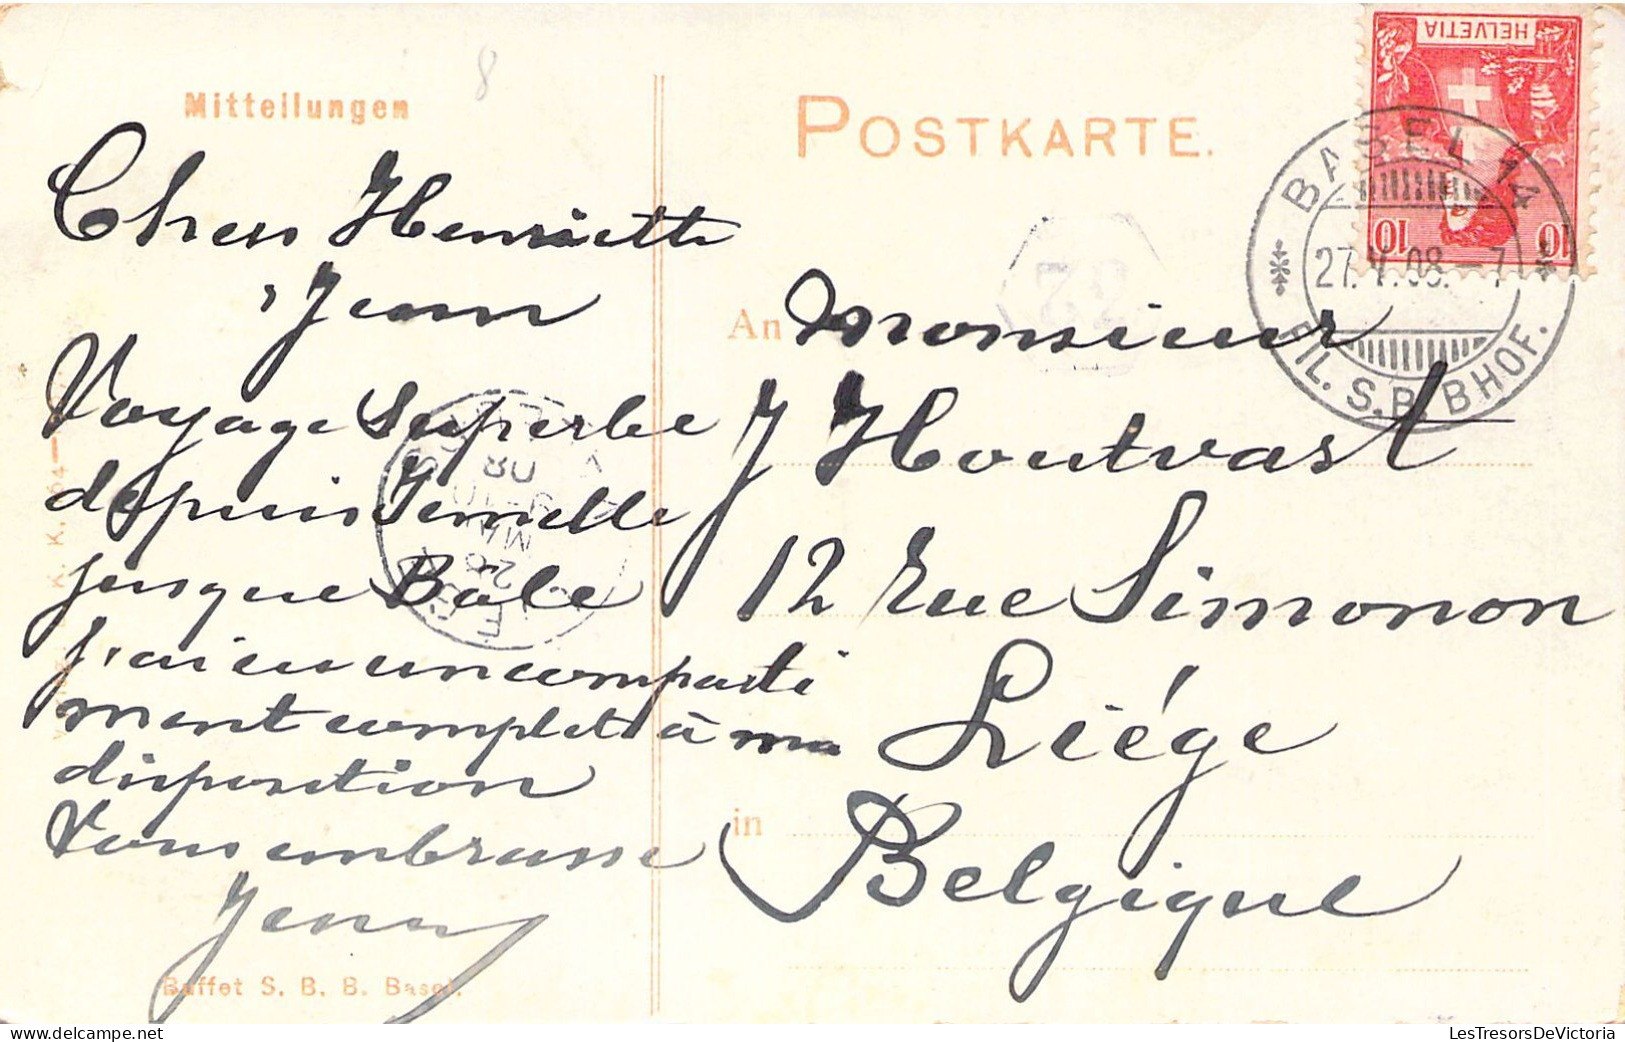 8
Mitteilungen
POSTKARTE.
HELVETIA
10 10
BASEL 14
27.V.08.-7
FIL. S.B.BHOF.
Chers Henriette
, Jean
Voyage Superbe
depuis Jemelle
jusque Bâle
j'ai eu un comparti
ment complet à ma
disposition
Vous embrasse
Jenny
An Monsieur
J Houtvast
12 Rue Simonon
Liége
in Belgique
32
28
MA
9-10
08
K. K. Z. 64
Buffet S. B. B. Basel.
www.delcampe.net
LesTresorsDeVictoria